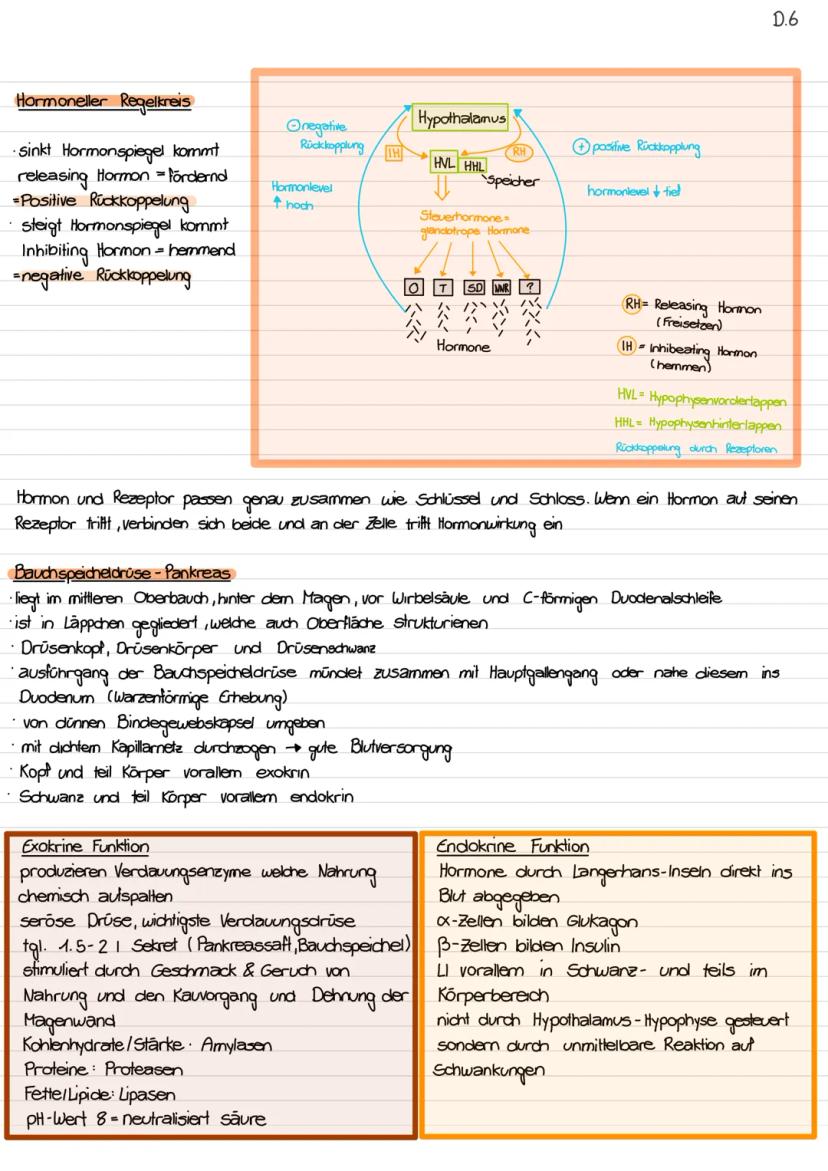 D.6
Hormoneller Regelkreis
· sinkt Hormonspiegel kommt
releasing Hormon = fördernd
=Positive Rückkoppelung
· steigt Hormonspiegel kommt
Inhibiting Hormon = hemmend
=negative Rückkoppelung
Hypothalamus
⊖ negative
Rückkopplung
IH
RH
⊕ positive Rückkopplung
HVL HHL
Speicher
Hormonlevel
↑ hoch
hormonlevel ↓ tief
Steuerhormone =
glandotrope Hormone
O T SD NNR ?
Hormone
RH = Releasing Hormon
(Freisetzen)
IH = Inhibeating Hormon
(hemmen)
HVL = Hypophysenvorderlappen
HHL = Hypophysenhinterlappen
Rückkoppelung durch Rezeptoren
Hormon und Rezeptor passen genau zusammen wie Schlüssel und Schloss. Wenn ein Hormon auf seinen
Rezeptor trifft, verbinden sich beide und an der Zelle trifft Hormonwirkung ein
Bauchspeicheldrüse - Pankreas
· liegt im mittleren Oberbauch, hinter dem Magen, vor Wirbelsäule und C-förmigen Duodenalschleife
· ist in Läppchen gegliedert, welche auch Oberfläche strukturieren
· Drüsenkopf, Drüsenkörper und Drüsenschwanz
· ausführgang der Bauchspeicheldrüse mündet zusammen mit Hauptgallengang oder nahe diesem ins
Duodenum (Warzenförmige Erhebung)
· von dünnen Bindegewebskapsel umgeben
· mit dichtem Kapillarnetz durchzogen → gute Blutversorgung
· Kopf und teil Körper vorallem exokrin
· Schwanz und teil Körper vorallem endokrin
Exokrine Funktion
produzieren Verdauungsenzyme welche Nahrung
chemisch aufspalten
seröse Drüse, wichtigste Verdauungsdrüse
tgl. 1.5-2 l Sekret (Pankreassaft, Bauchspeichel)
stimuliert durch Geschmack & Geruch von
Nahrung und den Kauvorgang und Dehnung der
Magenwand
Kohlenhydrate/Stärke: Amylasen
Proteine: Proteasen
Fette/Lipide: Lipasen
pH-Wert 8 = neutralisiert säure
Endokrine Funktion
Hormone durch Langerhans-Inseln direkt ins
Blut abgegeben
α-Zellen bilden Glukagon
β-Zellen bilden Insulin
LI vorallem in Schwanz- und teils im
Körperbereich
nicht durch Hypothalamus-Hypophyse gesteuert
sondern durch unmittelbare Reaktion auf
Schwankungen